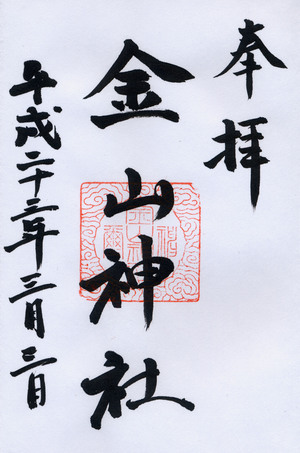 奉拝
金山神社
平成二十二年三月三日